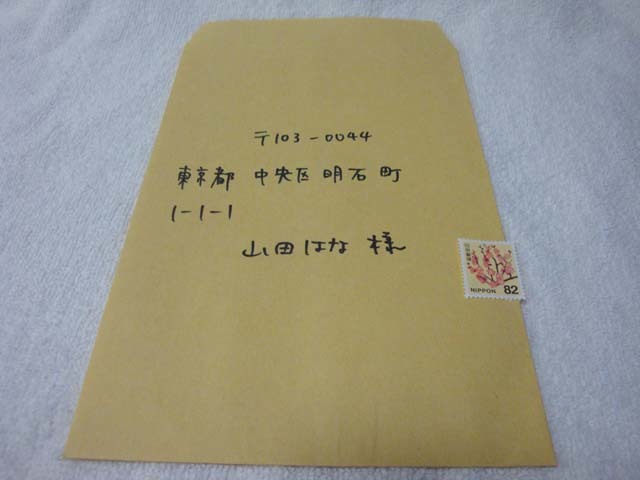 〒103-0044
東京都 中央区 明石町
1-1-1
山田はな 様
NIPPON 82